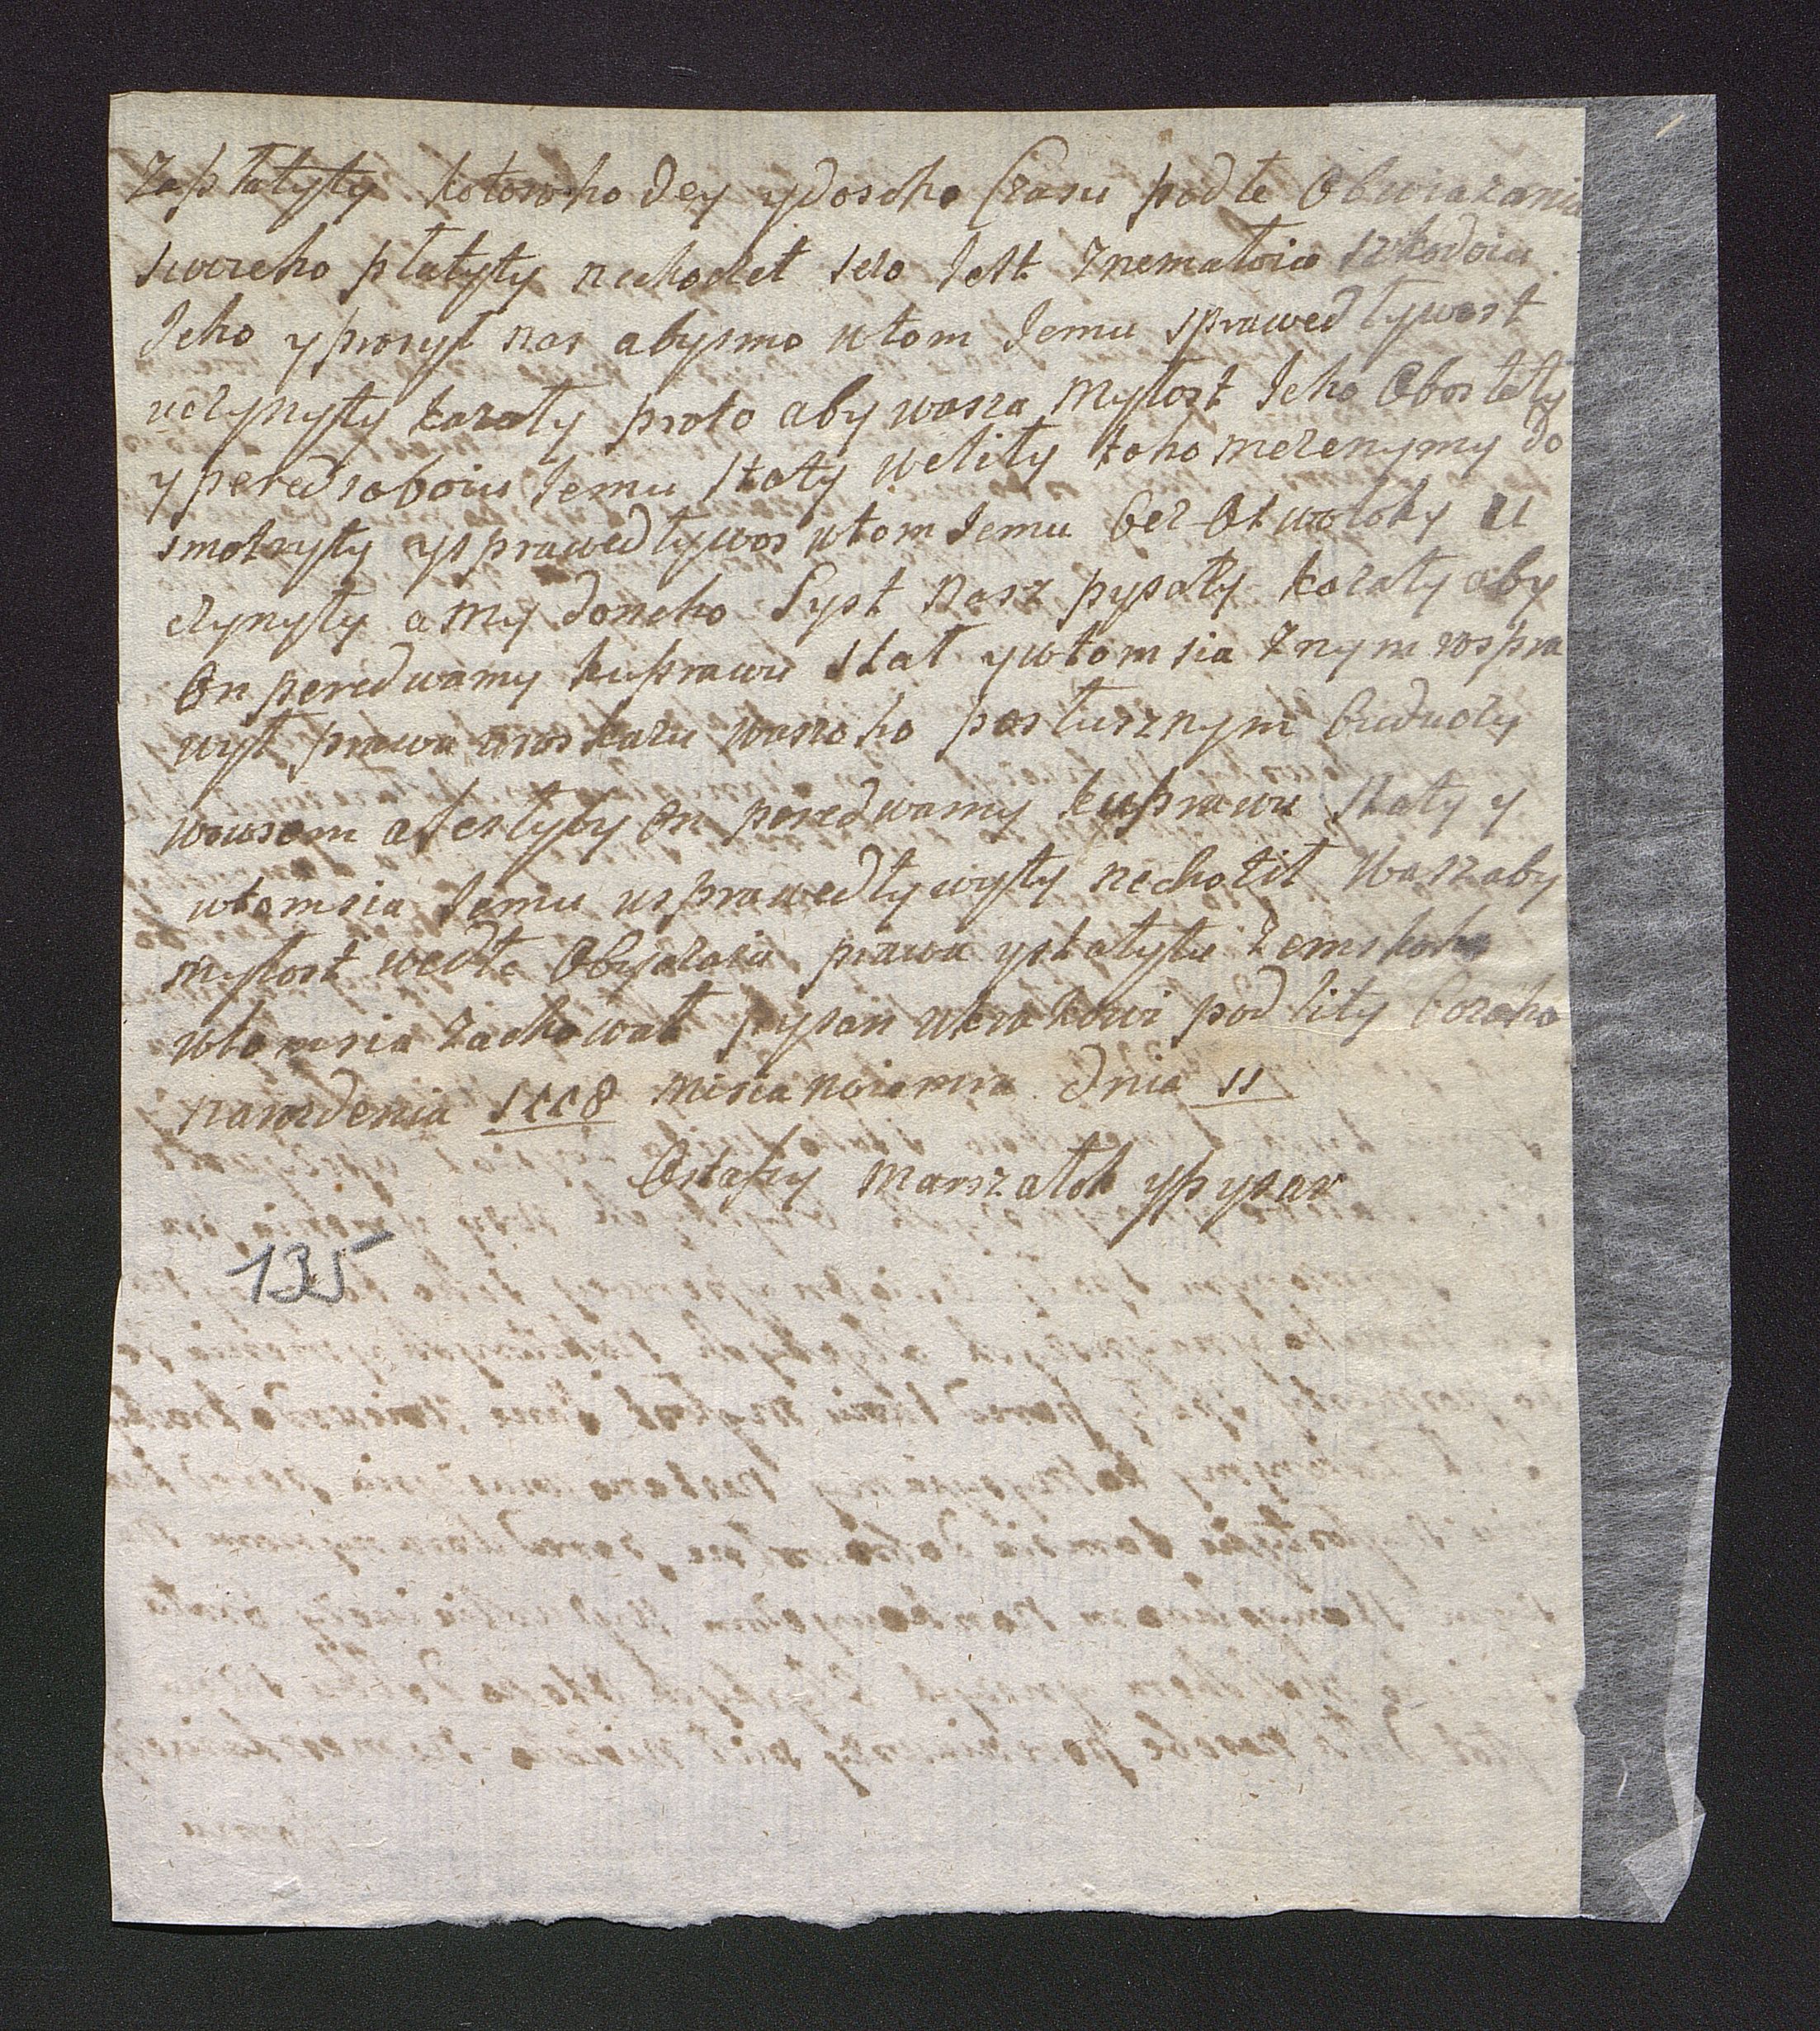 Zapłatyty kotoroho dey ydoseho Czasu podłe Obwiazania
swoieho płatyty nechodet szo Jest Znemałoiu szkodoiu
Jeho yprosył nas abysmo wtom Jemu sprawedływost
uczynyty kazały proto aby wasza Myłost Jeho Obosłały
ypered soboiu Jemu Staty weliły toho mezenymy do
smotryły ysprawedływos wtom Jemu bez Otwołoky U
czynyły a My doneho Lyst Nasz pysaty kazały aby
On peredwamy kuprawu Stał ywtomsia Znym rospra
wył prawa uroskazu waszoho posłusznym buduczy
wowsem a Jestlyby On peredwamy kuprawu Staty y
wtomsia Jemu usprawedływyty nechotił Waszaby
myłost wedłe Obyczaiu prawa ystatytu Zemskoho
wtomsia Zachował pysan ukrakowi pod lity bozoho
narozdenia 1558 misia noiamra dnia 11
Ostafiy Marszałok ypysar
135